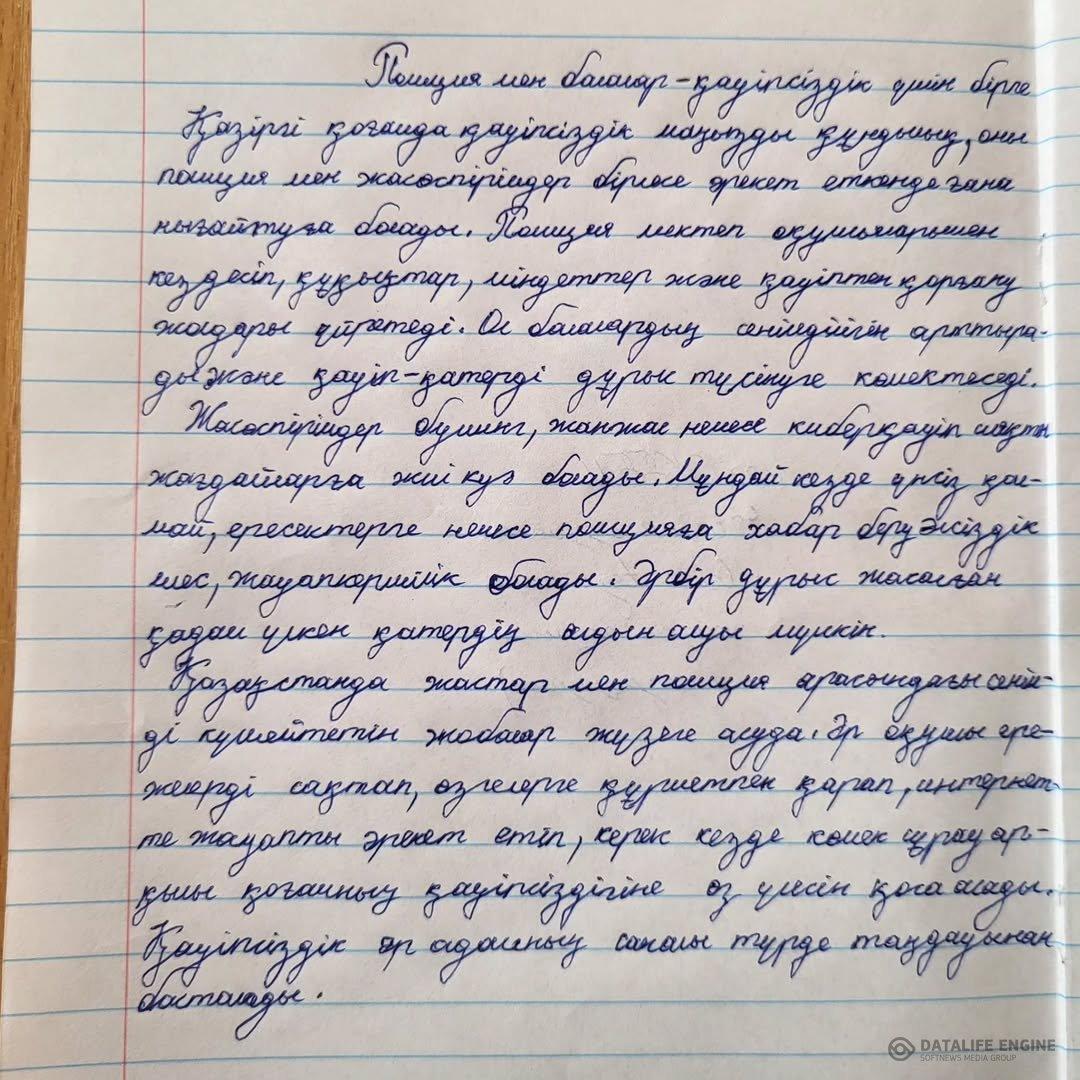 Полиция мен балалар – қауіпсіздік үшін бірге
Қазіргі қоғамда қауіпсіздік маңызды құндылық, оны
полиция мен жасөспірімдер бірлесе әрекет еткенде ғана
нығайтуға болады. Полиция мектеп оқушыларымен
кездесіп, құқықтар, міндеттер және қауіптен қорғану
жолдары үйретеді. Ол балалардың сенімділігін арттыра-
ды және қауіп-қатерді дұрыс түсінуге көмектеседі.
Жасөспірімдер буллинг, жанжал немесе киберқауіп сияқты
жағдайларға жиі куә болады. Мұндай кезде үнсіз қал-
май, ересектерге немесе полицияға хабар беру әлсіздік
емес, жауапкершілік болады. Әрбір дұрыс жасалған
қадам үлкен қатердің алдын алуы мүмкін.
Қазақстанда жастар мен полиция арасындағы сенім-
ді күшейтетін жобалар жүзеге асуда. Әр оқушы ере-
желерді сақтап, өзгелерге құрметпен қарап, интернет-
те жауапты әрекет етіп, керек кезде көмек сұрау ар-
қылы қоғамның қауіпсіздігіне өз үлесін қоса алады.
Қауіпсіздік әр адамның саналы түрде таңдауынан
басталады.
DATALIFE ENGINE
SOFTNEWS MEDIA GROUP